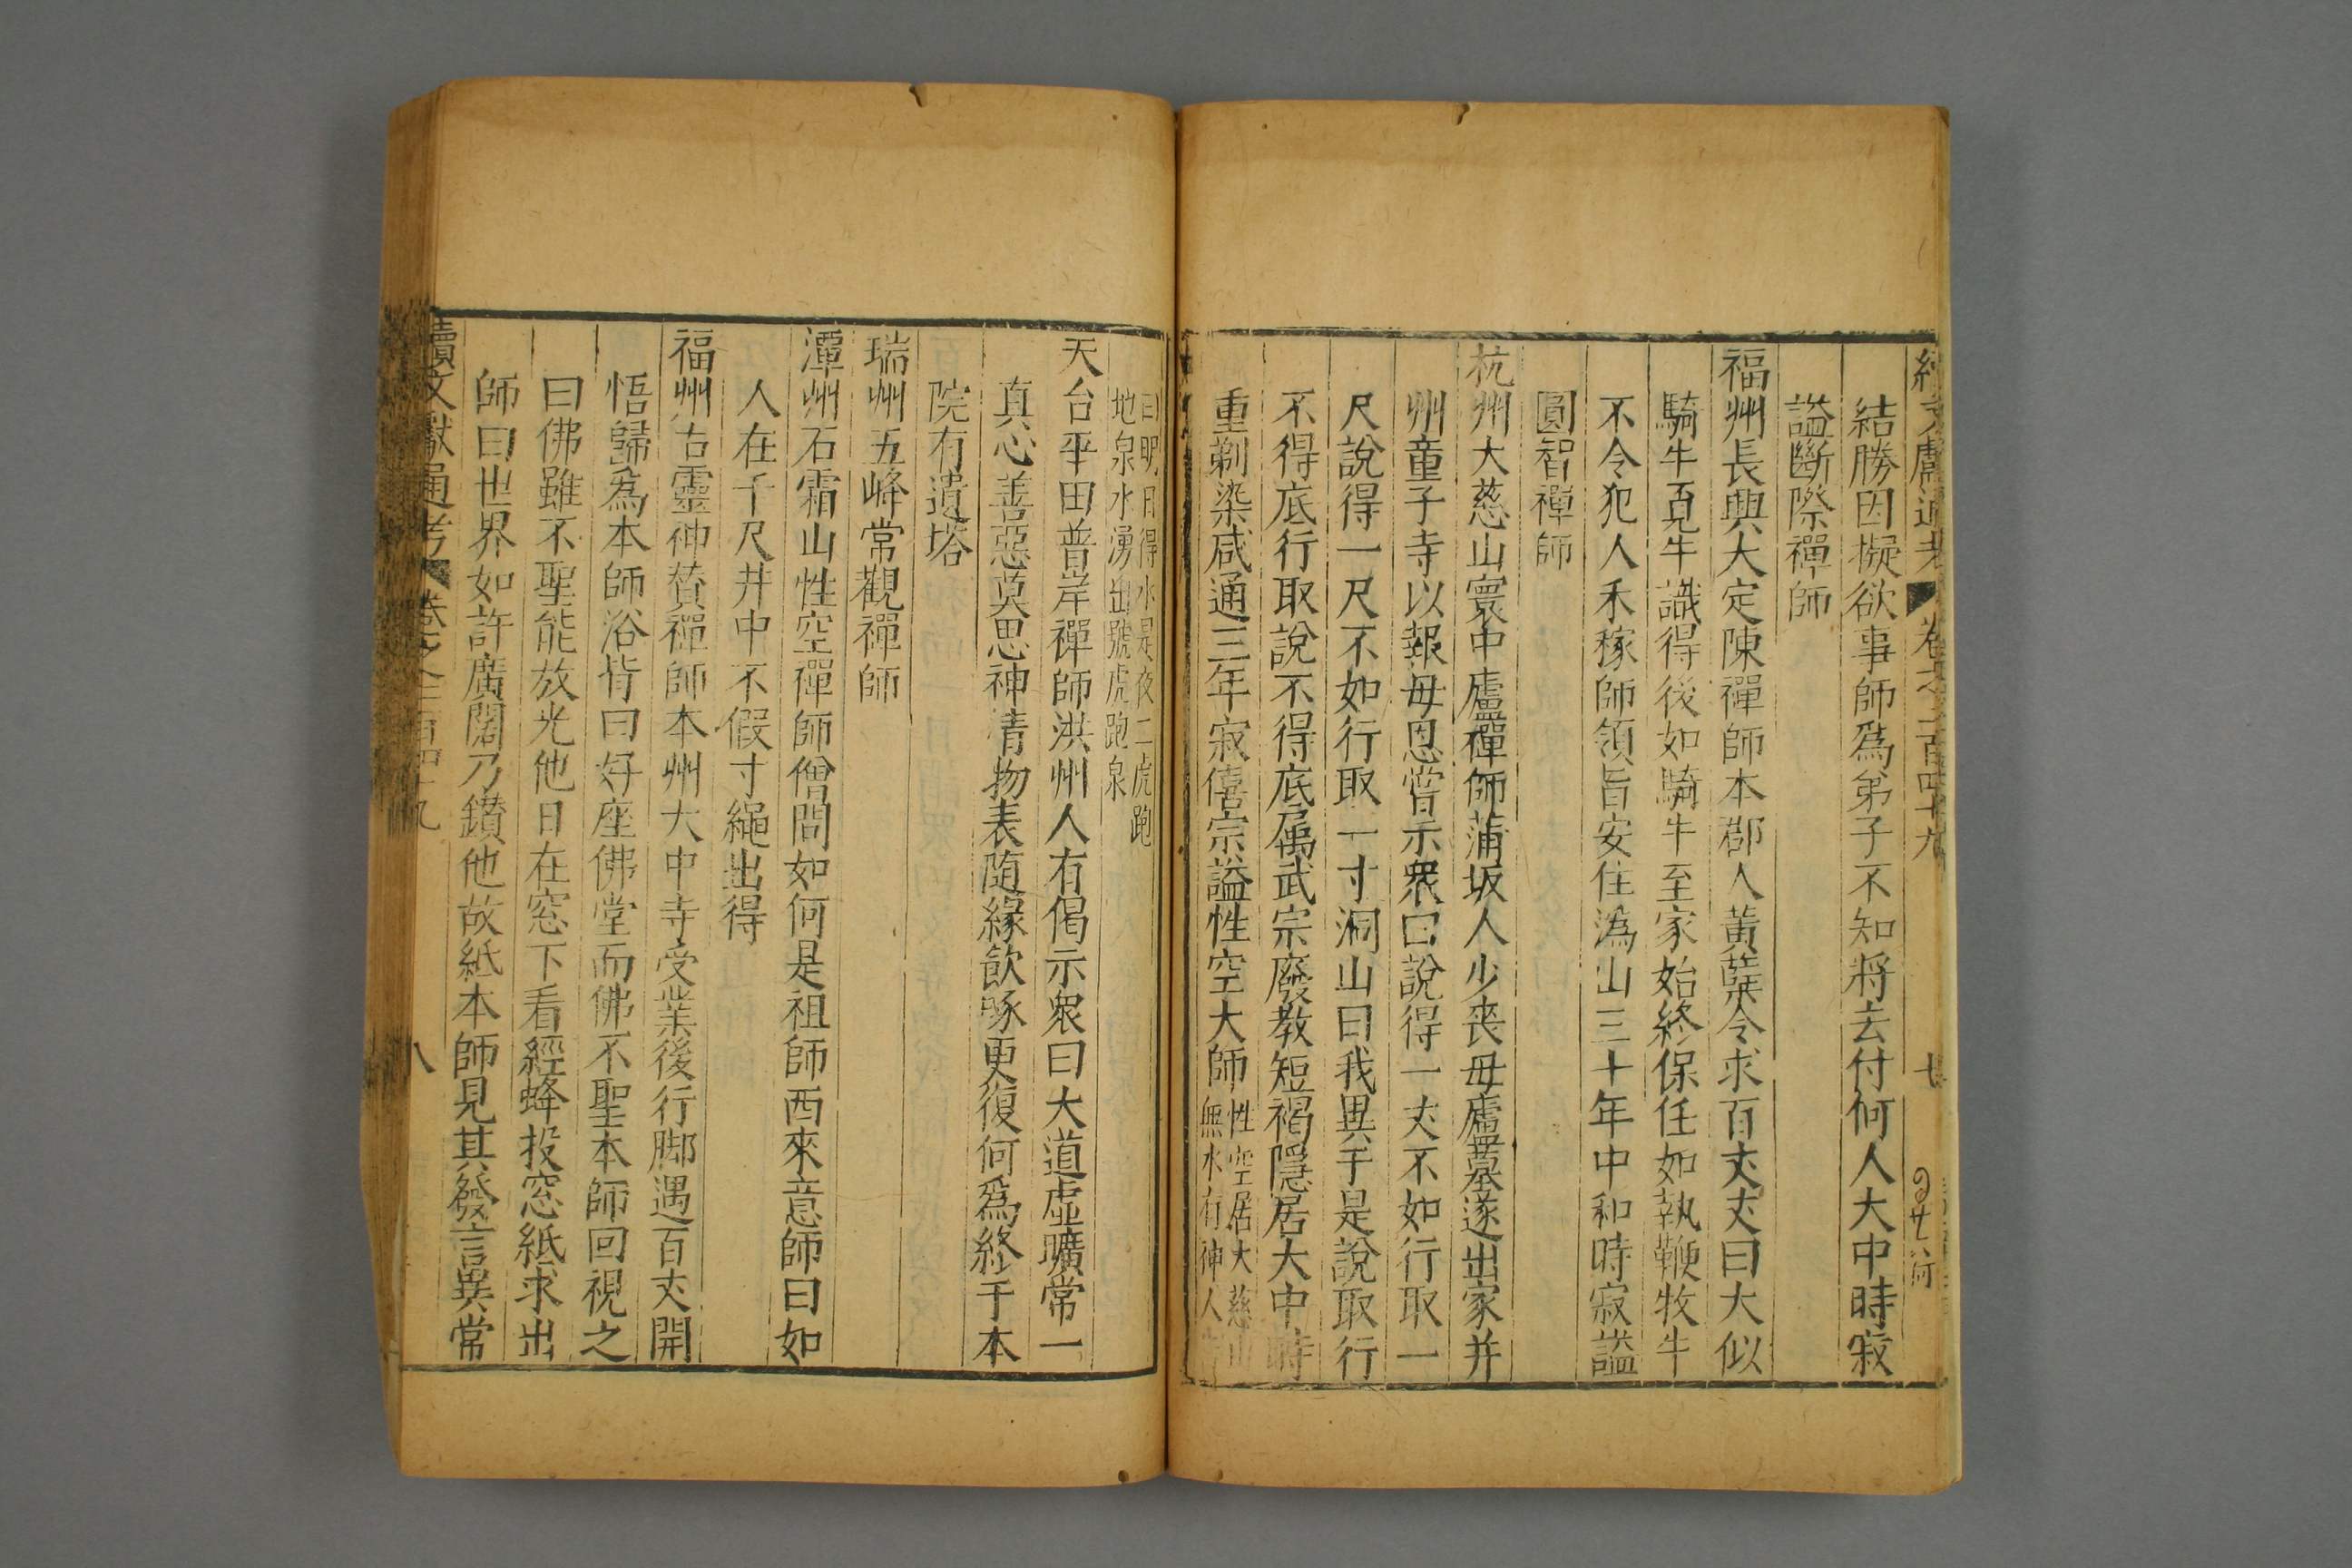 續文獻通考 卷之二百四十九 七
結勝因擬欲事師爲弟子不知將去付何人大中時寂
謚斷際禪師
福州長興大定陳禪師本郡人黃蘗令求百丈丈曰大似
騎牛覓牛識得後如騎牛至家始終保任如執鞭牧牛
不令犯人禾稼師領旨安住溈山三十年中和時寂謚
圓智禪師
杭州大慈山寰中盧禪師蒲坂人少丧母廬墓遂出家并
州童子寺以報母恩嘗示衆曰說得一丈不如行取一
尺說得一尺不如行取一寸洞山曰我異于是說取行
不得底行取說不得底属武宗廢教短褐隱居大中時
重剃染咸通三年寂僖宗謚性空大師性空居大慈山
無水有神人
曰明日得水是夜二虎跑
地泉水湧出號虎跑泉
天台平田普岸禪師洪州人有偈示衆曰大道虛曠常一
真心善惡莫思神清物表随緣飲啄更復何爲終于本
院有遺塔
瑞州五峰常觀禪師
潭州石霜山性空禪師僧問如何是祖師西來意師曰如
人在千尺井中不假寸繩出得
福州古靈神賛禪師本州大中寺受業後行脚遇百丈開
悟歸爲本師浴背曰好座佛堂而佛不聖本師回視之
曰佛雖不聖能放光他日在窓下看經蜂投窓紙求出
師曰世界如許廣闊乃鑚他故紙本師見其發言異常
續文獻通考 卷之二百四十九 八